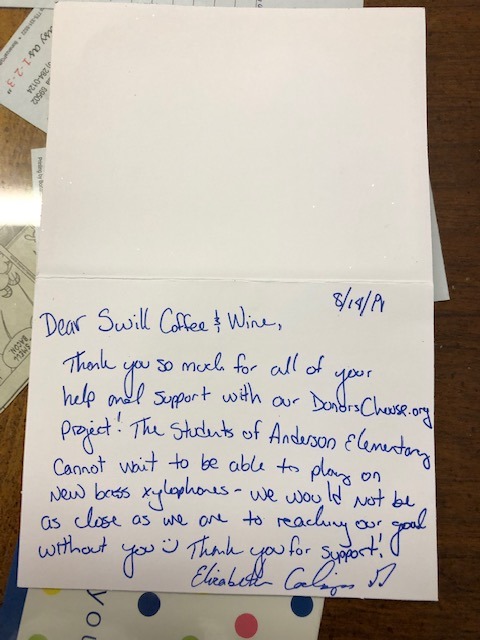 easy as 1-2-3"
284-0124
89502
SMELL
BACON
8/14/19
Dear Swill Coffee & Wine,
Thank you so much for all of your
help and support with our DonorsChoose.org
Project! The Students of Anderson Elementary
Cannot wait to be able to play on
New bass xylophones - we would not be
as close as we are to reaching our goal
without you Thank you for support!
Elizabeth
you